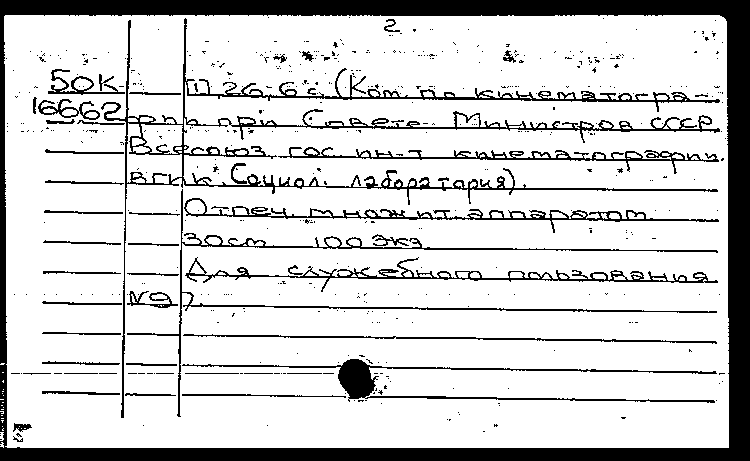 2.
50К [1], 26, 6 с. (Ком. по кинематогра-
16662 фии при Совете Министров СССР.
Всесоюз. гос. ин-т кинематографии.
ВГИК. Социол. лаборатория).
Отпеч. множит. аппаратом.
30см 100 экз.
Для служебного пользования
№97.